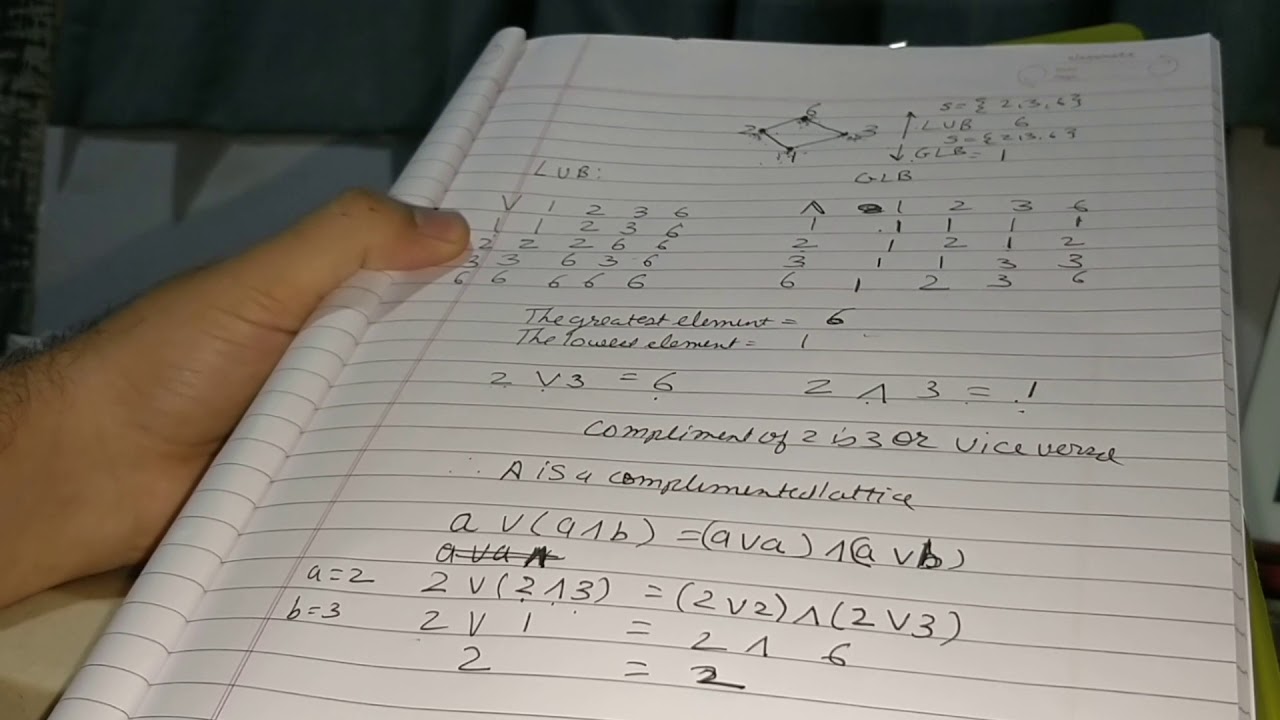 classmate
6
2 3
1
S = { 2, 3, 6 }
↑ LUB 6
S = { 2, 3, 6 }
↓ GLB = 1
LUB: GLB
V 1 2 3 6
1 1 2 3 6
2 2 2 6 6
3 3 6 3 6
6 6 6 6 6
Λ 1 2 3 6
1 1 1 1 1
2 1 2 1 2
3 1 1 3 3
6 1 2 3 6
The greatest element = 6
The lowest element = 1
2 V 3 = 6 2 Λ 3 = 1
Compliment of 2 is 3 or vice versa
∴ A is a complimented lattice
a V (a Λ b) = (a V a) Λ (a V b)
a V a Λ
a = 2 2 V (2 Λ 3) = (2 V 2) Λ (2 V 3)
b = 3 2 V 1 = 2 Λ 6
2 = 2